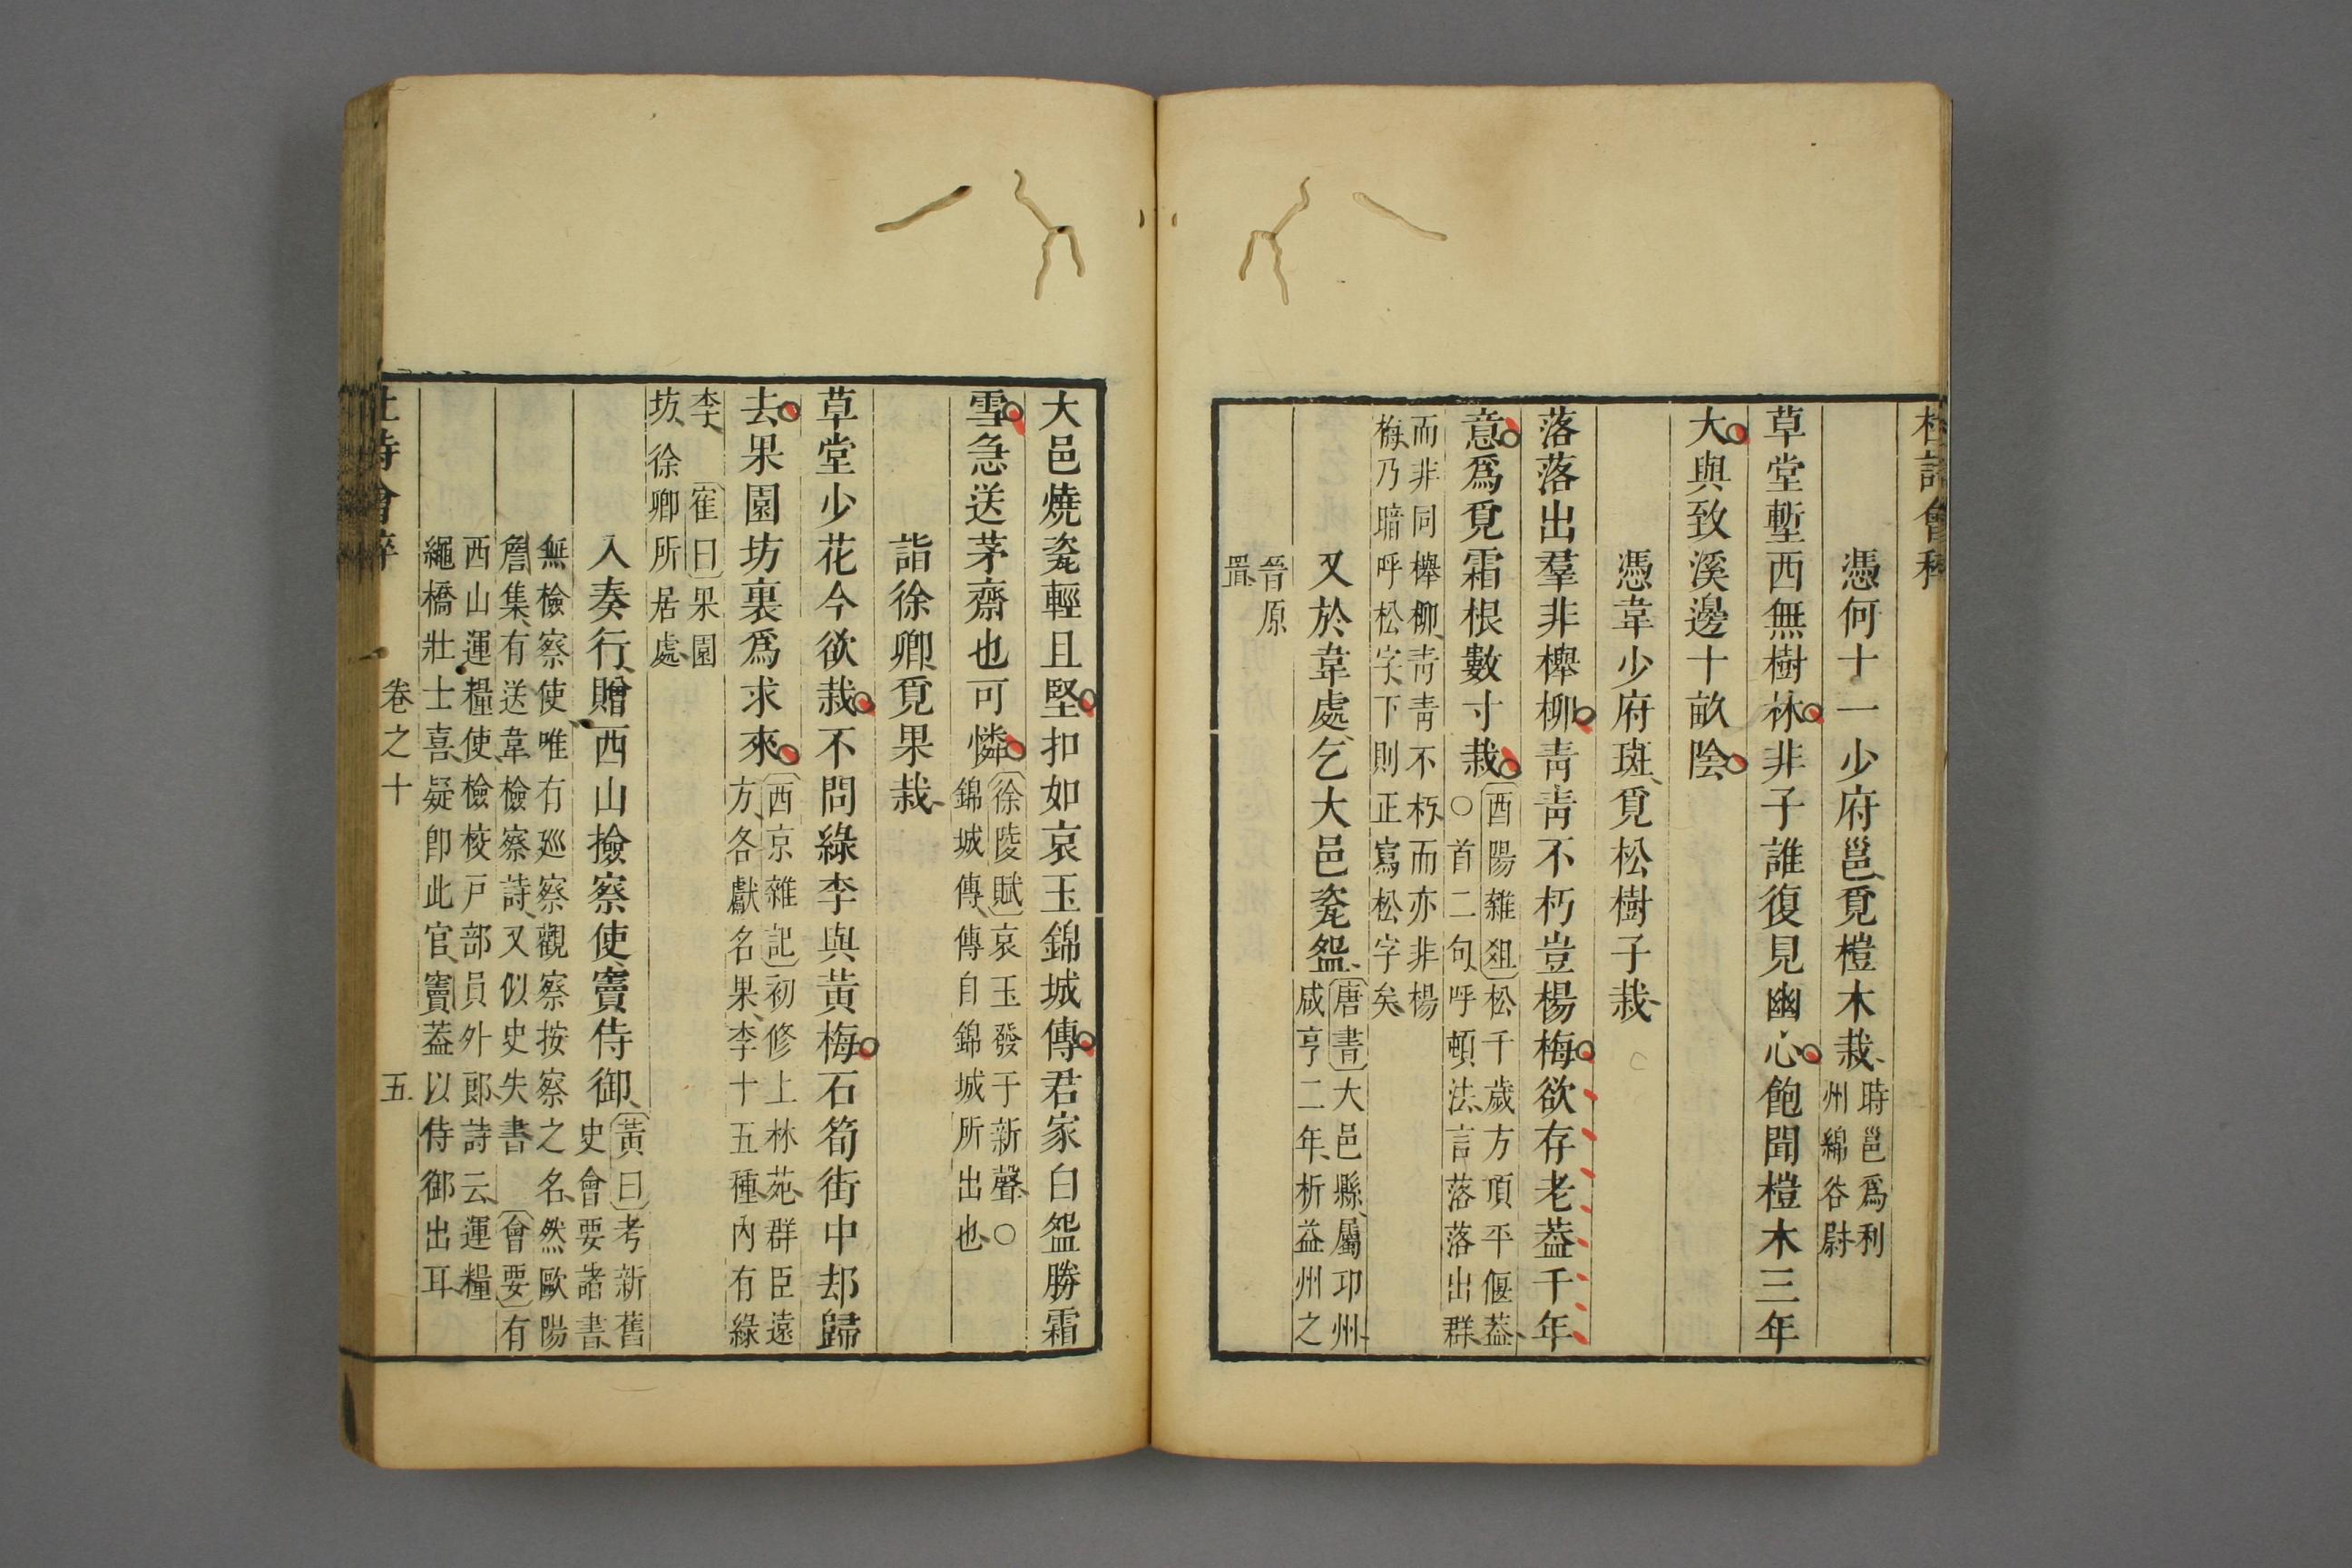 杜詩會稡
憑何十一少府邕覓榿木栽、時邕爲利
州綿谷尉
草堂塹西無樹林非子誰復見幽心飽聞榿木三年
大與致溪邊十畝陰
憑韋少府斑、覓松樹子栽、
落落出羣非櫸柳靑靑不朽豈楊梅欲存老葢千年
意爲覓霜根數寸栽〔酉陽雜俎〕松千歲方頂平偃葢、
○首二句、呼頓法、言落落出群、
而非同櫸柳、靑靑不朽、而亦非楊
梅、乃暗呼松字、下則正寫松字矣、
又於韋處、乞大邑瓷盌、〔唐書〕大邑縣、屬邛州、
咸亨二年、析益州之
晉原
置、
大邑燒瓷輕且堅扣如哀玉錦城傳君家白盌勝霜
雪急送茅齋也可憐〔徐陵賦〕哀玉發于新聲、○
錦城傳、傳自錦城所出也、
詣徐卿、覓果栽、
草堂少花今欲栽不問綠李與黃梅石筍街中却歸
去果園坊裏爲求來〔西京雜記〕初修上林苑、群臣遠
方、各獻名果、李十五種、內有綠
李、〔崔曰〕果園
坊、徐卿所居處、
入奏行、贈西山撿察使、竇侍御、〔黃曰〕考新舊
史會要諸書、
無檢察使唯有廵察觀察按察之名、然歐陽
詹集、有送韋檢察詩、又似史失書〔會要〕有
西山運糧使、檢校戶部員外郞、詩云、運糧
繩橋壯士喜、疑卽此官、竇葢以侍御出耳、
杜詩會稡
卷之十
五